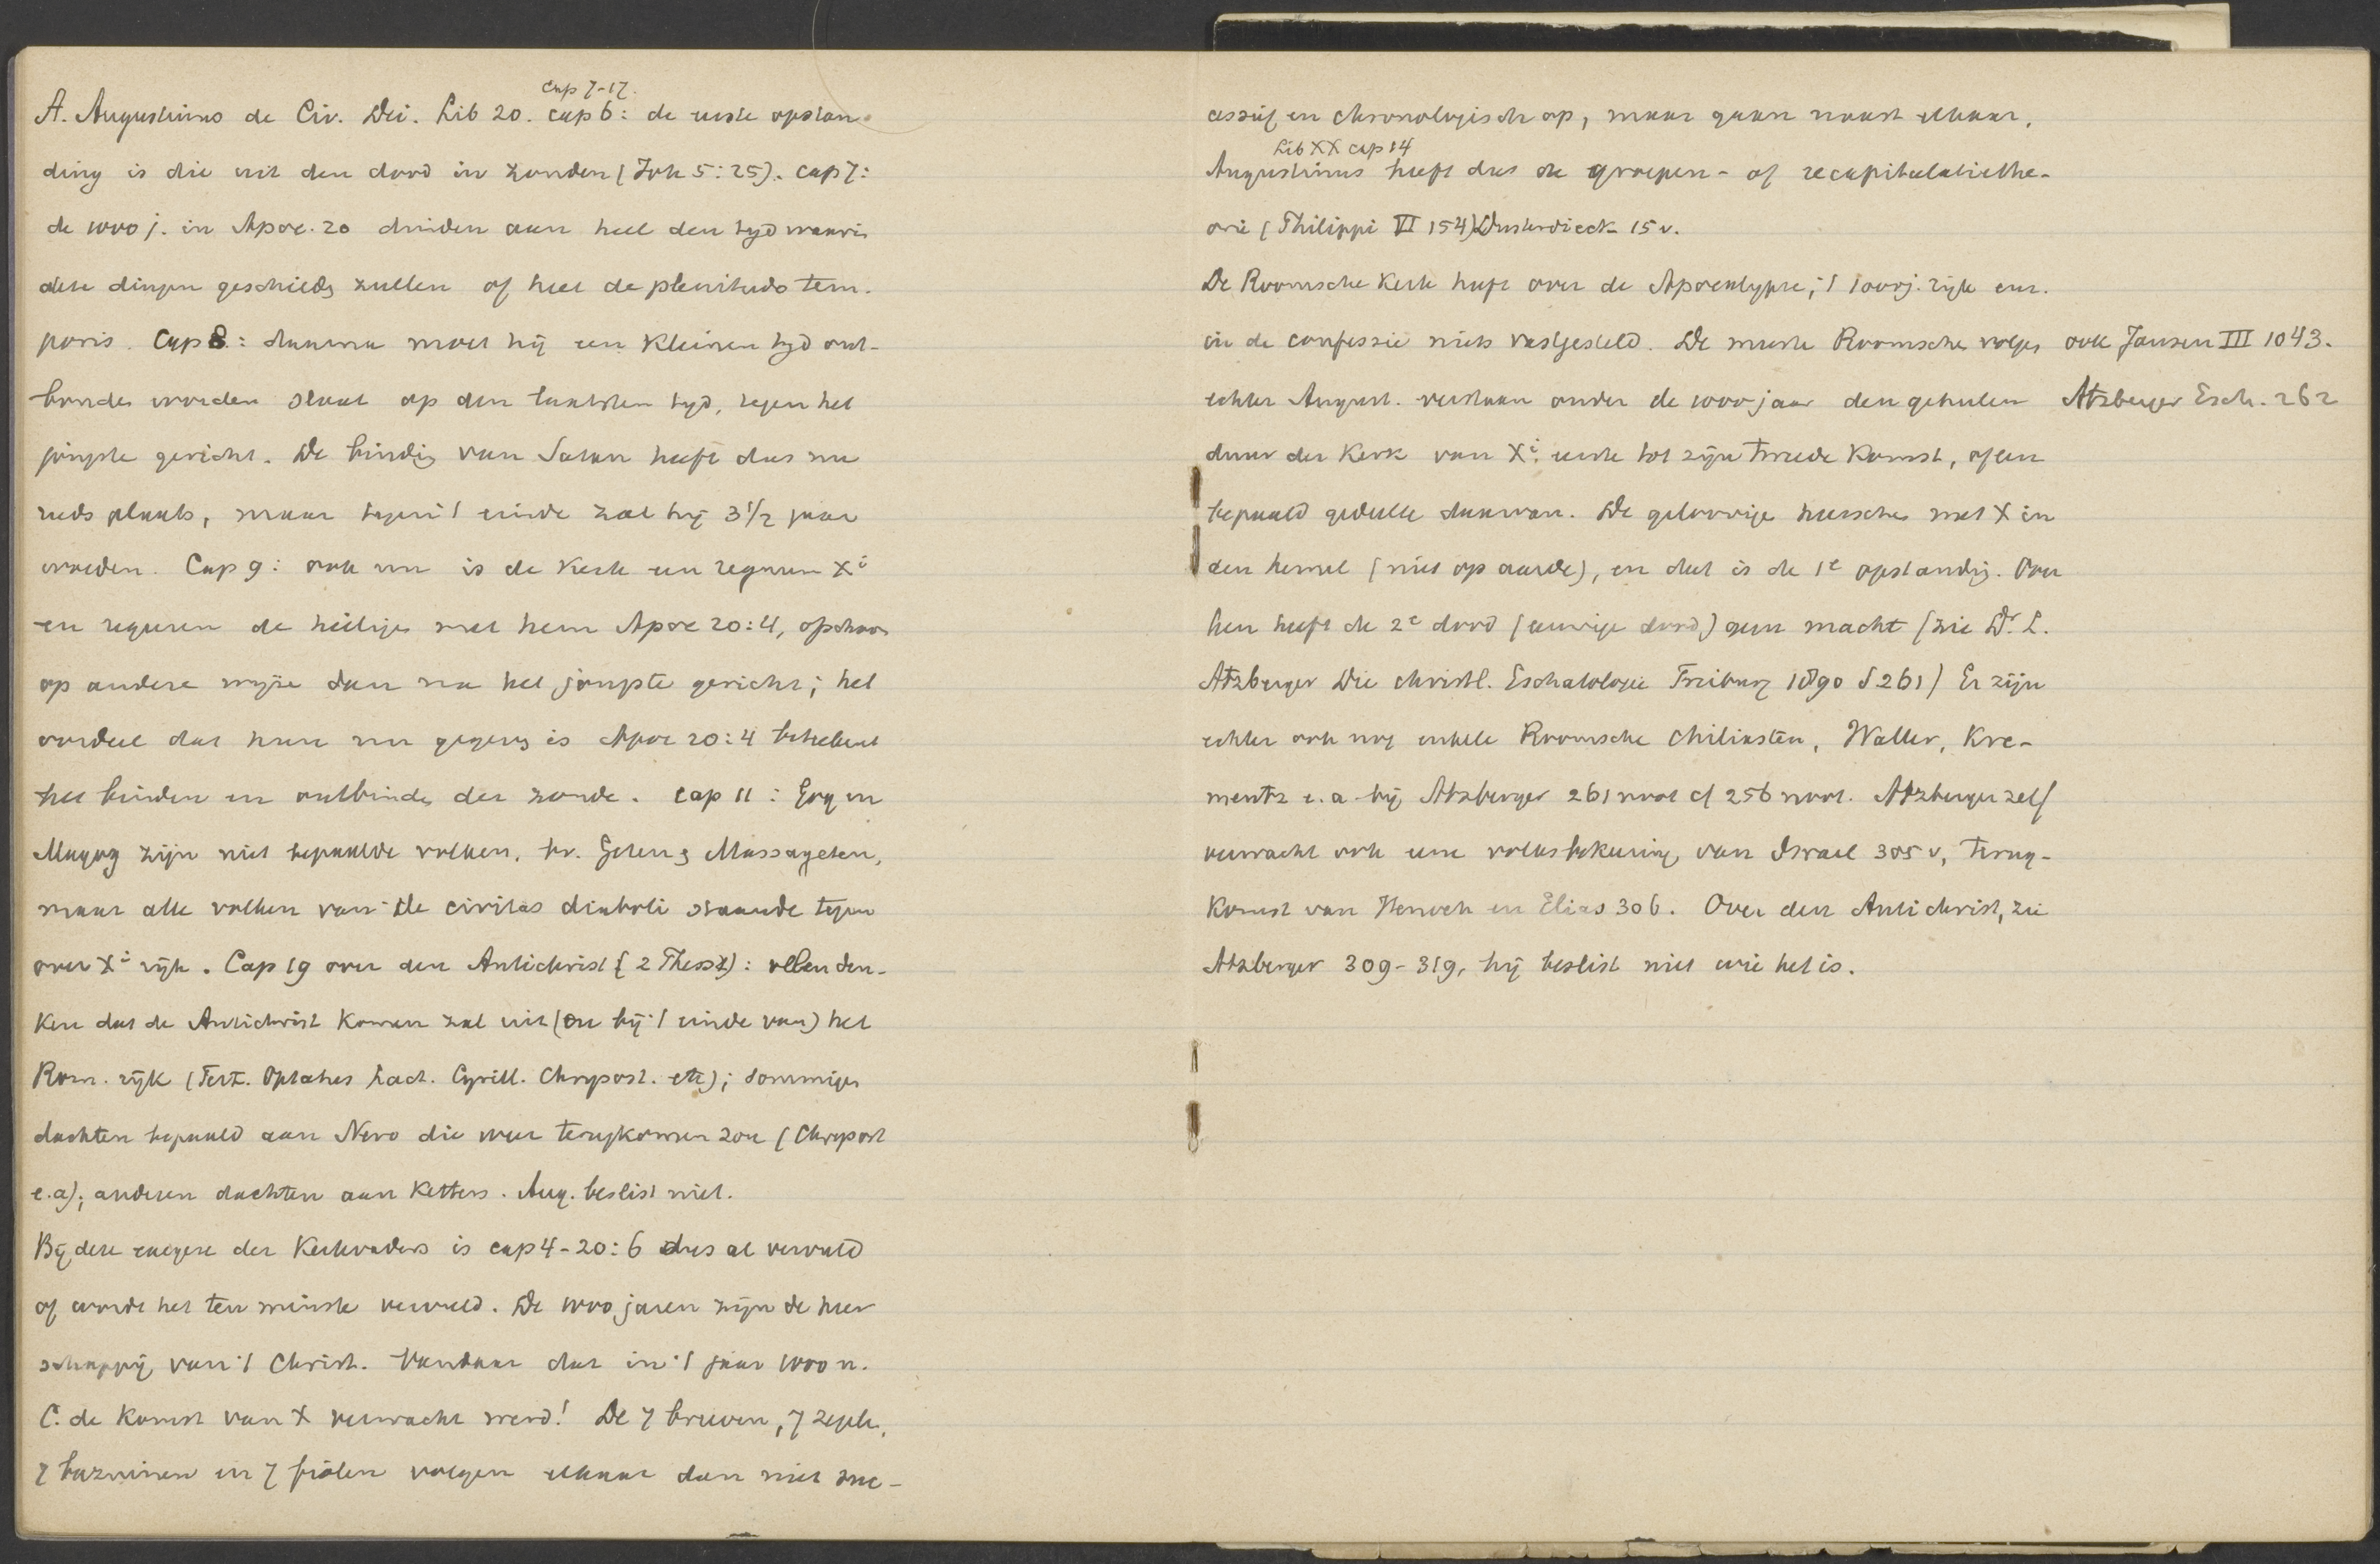 Cap 7-17.
A. Augustinus de Civ. Dei. Lib 20. cap 6: de eerste opstan-
ding is die uit den dood in zonden (Joh 5:25). cap 7:
de 1000 j. in Apoc. 20 duiden aan heel den tyd waarin
deze dingen geschieden zullen of heel de plenitudo tem-
poris. Cap 8: daarna moet hij een kleinen tyd ont-
bonden worden slaat op den laatsten tyd, tegen het
jongste gericht. De binding van Satan heeft dus nu
reeds plaats, maar tegen 't einde zal hij 3 1/2 jaar
woeden. Cap 9: ook nu is de kerk een regnum Xi
en regeeren de heiligen met hem Apoc 20:4, ofschoon
op andere wijze dan na het jongste gericht; het
oordeel dat hun nu gegeven is Apoc 20:4 beteekent
het binden en ontbinden der zonde. Cap 11: Gog en
Magog zijn niet bepaalde volken, bv. Geten en Massageten,
maar alle volken van de civitas diaboli staande tegen
over Xi rijk. Cap 19 over den Antichrist (2 Thess 2): velen den-
ken dat de Antichrist komen zal uit (en bij 't einde van) het
Rom. rijk (Tert. Optatus Lact. Cyrill. Chrysost. etc); sommigen
dachten bepaald aan Nero die weer terugkomen zou (Chrysost
e.a); anderen dachten aan Ketters. Aug. beslist niet.
Bij deze exegese der Kerkvaders is cap 4-20:6 dus al vervuld
of wordt het ten minste vervuld. De 1000 jaren zijn de heer
schappij van 't Christ. Vandaar dat in 't jaar 1000 n.
C. de komst van X verwacht werd! De 7 brieven, 7 zegels,
7 bazuinen en 7 fiolen volgen elkaar dan niet suc-
cessief en chronologisch op, maar gaan naast elkaar.
Lib XX cap 14
Augustinus heeft dus de groepen- of recapitulatiethe-
orie (Philippi VI 154) Dusterdieck 15 v.
De Roomsche Kerk heeft over de Apocalypse, 't 1000j. rijk enz.
in de confessie niets vastgesteld. De meeste Roomschen volgen ook Jansen III 1043.
echter August. verstaan onder de 1000 jaar den geheelen Atzberger Esch. 262
duur der Kerk van Xi eerste tot zijn tweede komst, of een
bepaald gedeelte daarvan. De geloovigen heerschen met X in
den hemel (niet op aarde), en dat is de 1e opstanding. Over
hen heeft de 2e dood (eeuwige dood) geen macht (zie Dr. L.
Atzberger Die christl. Eschatologie Freiburg 1890 S 261) Er zijn
echter ook nog enkele Roomsche Chiliasten, Waller, Kre-
mentz e.a. bij Atzberger 261 noot cf 256 noot. Atzberger zelf
verwacht ook eene volksbekeering van Israel 305 v, terug-
komst van Henoch en Elias 306. Over den Antichrist, zie
Atzberger 309-319, hij beslist niet wie het is.